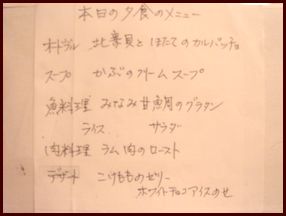 本日の夕食のメニュー
オードブル 北寄貝とほたてのカルパッチョ
スープ かぶのクリームスープ
魚料理 みなみ甘鯛のグラタン
ライス サラダ
肉料理 ラム肉のロースト
デザート こけもものゼリー
ホワイトチョコアイスのせ